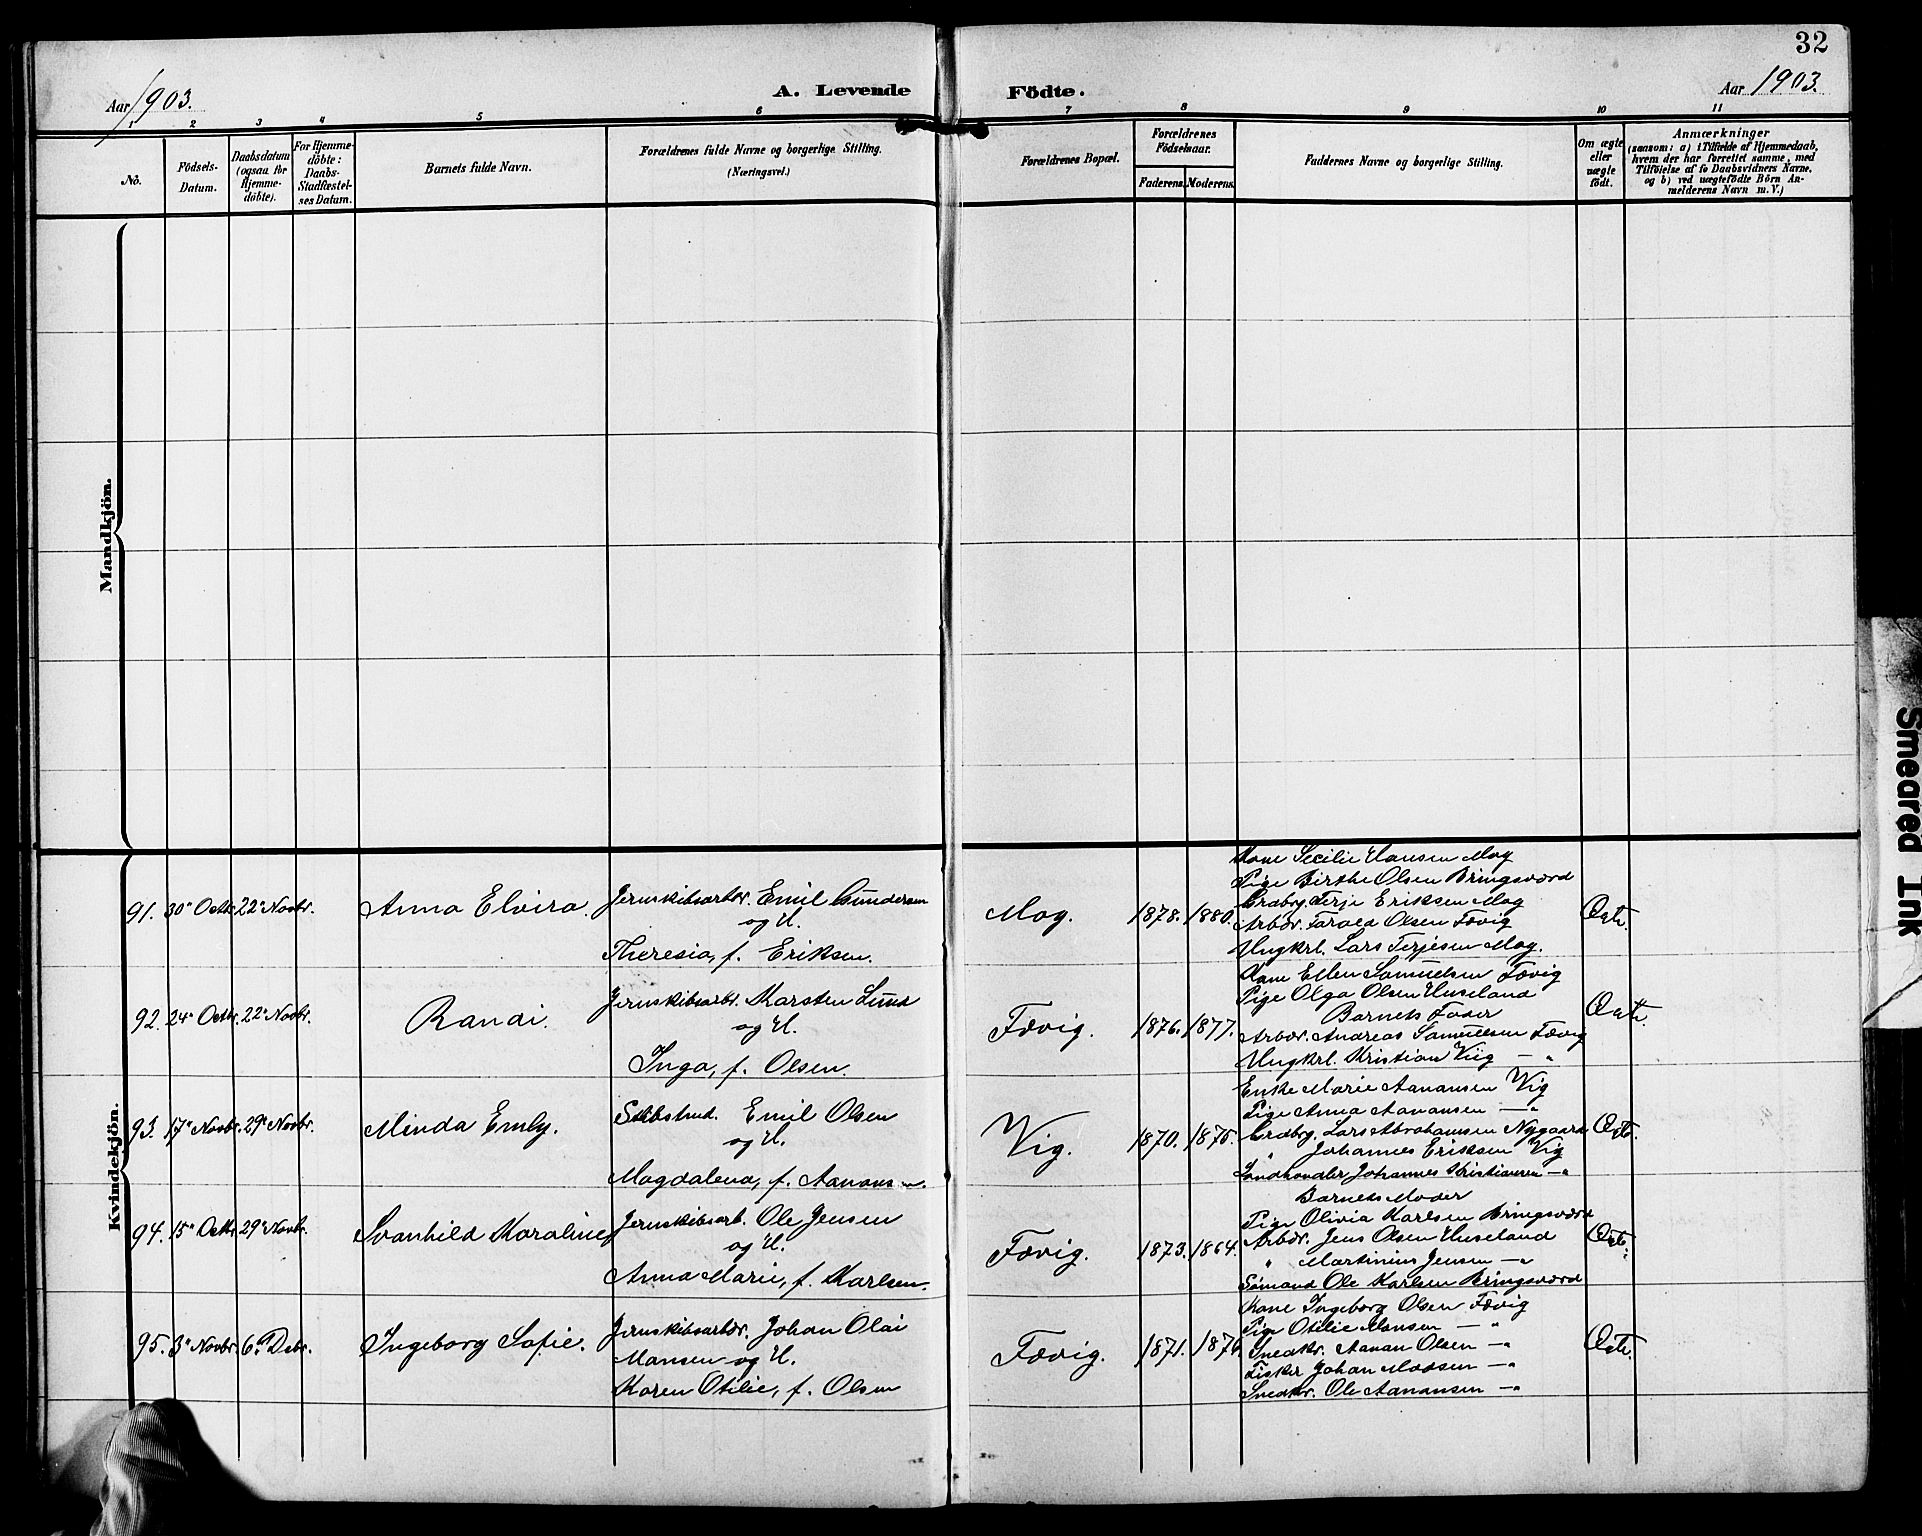 32
Aar 1903.
A. Levende Födte.
Aar 1903.
1 2 3 4 5 6 7 8 9 10 11
No.
Födsels-
Datum.
Daabsdatum
(ogsaa for
Hjemme-
döbte).
For Hjemme-
döbte:
Daabs-
Stadfæstel-
ses Datum.
Barnets fulde Navn.
Forældrenes fulde Navne og borgerlige Stilling.
(Næringsvei.)
Forældrenes Bopæl.
Forældrenes
Födselsaar.
Faderens. Moderens.
Faddernes Navne og borgerlige Stilling.
Om ægte
eller
uægte
födt.
Anmærkninger
(saasom: a) i Tilfælde af Hjemmedaab,
hvem der har forrettet samme, med
Tilföielse af to Daabsvidners Navne,
og b) ved uægtefödte Börn An-
melderens Navn m. V.)
Mandkjön.
Kvindekjön.
91. 30" Octbr. 22" Novbr.
Anna Elvira.
Jernskibsarbdr. Emil Gundersen
og H.
Theresia, f. Eriksen.
Moy.
1878. 1880.
Kone Secilie Hansen Moy
Pige Birthe Olsen Bringsværd
Grdbrg. Terje Eriksen Moy
Arbdr. Tarald Olsen Fævig
Ungkrl. Lars Terjesen Moy.
Ægte.
92. 24" Octbr. 22" Novbr.
Randi.
Jernskibsarbr. Karsten Lund
og H.
Inga, f. Olsen.
Fævig.
1876. 1877.
Kone Ellen Samuelsen Fævig
Pige Olga Olsen Huseland
Barnets Fader
Arbdr. Andreas Samuelsen Fævig
Ungkrl. Kristian Viig — "
Ægte.
93. 17" Novbr. 29" Novbr.
Minda Emly.
Emil Olsen
og H.
Magdalena, f. Aanonsen.
Vig.
1870. 1875.
Enke Marie Aanansen Vig
Pige Anna Aanansen — "
Grdbrg. Lars Abrahamsen Nygaard
" Johannes Eriksen Vig
Landhandler Johannes Kristiansen — "
Ægte.
94. 15" Octbr. 29" Novbr.
Svanhild Karoline
Jernskibsarb. Ole Jensen
og H.
Anna Marie, f. Karlsen.
Fævig.
1873. 1864.
Barnets Moder
Pige Olivia Karlsen Bringsværd
Arbdr. Jens Olsen Huseland
" Martinius Jensen — "
Sömand Ole Karlsen Bringsværd
Ægte.
95. 3" Novbr. 6" Debr.
Ingeborg Sofie.
Jernskibsarbdr. Johan Olai
Mansen og H.
Karen Otilie, f. Olsen
Fævig.
1871. 1876.
Kone Ingeborg Olsen Fævig
Pige Otilie Mansen — "
Snedkr. Aanan Olsen — "
Fisker Johan Madsen — "
Snedkr. Ole Aanansen — "
Ægte.
Smeared Ink